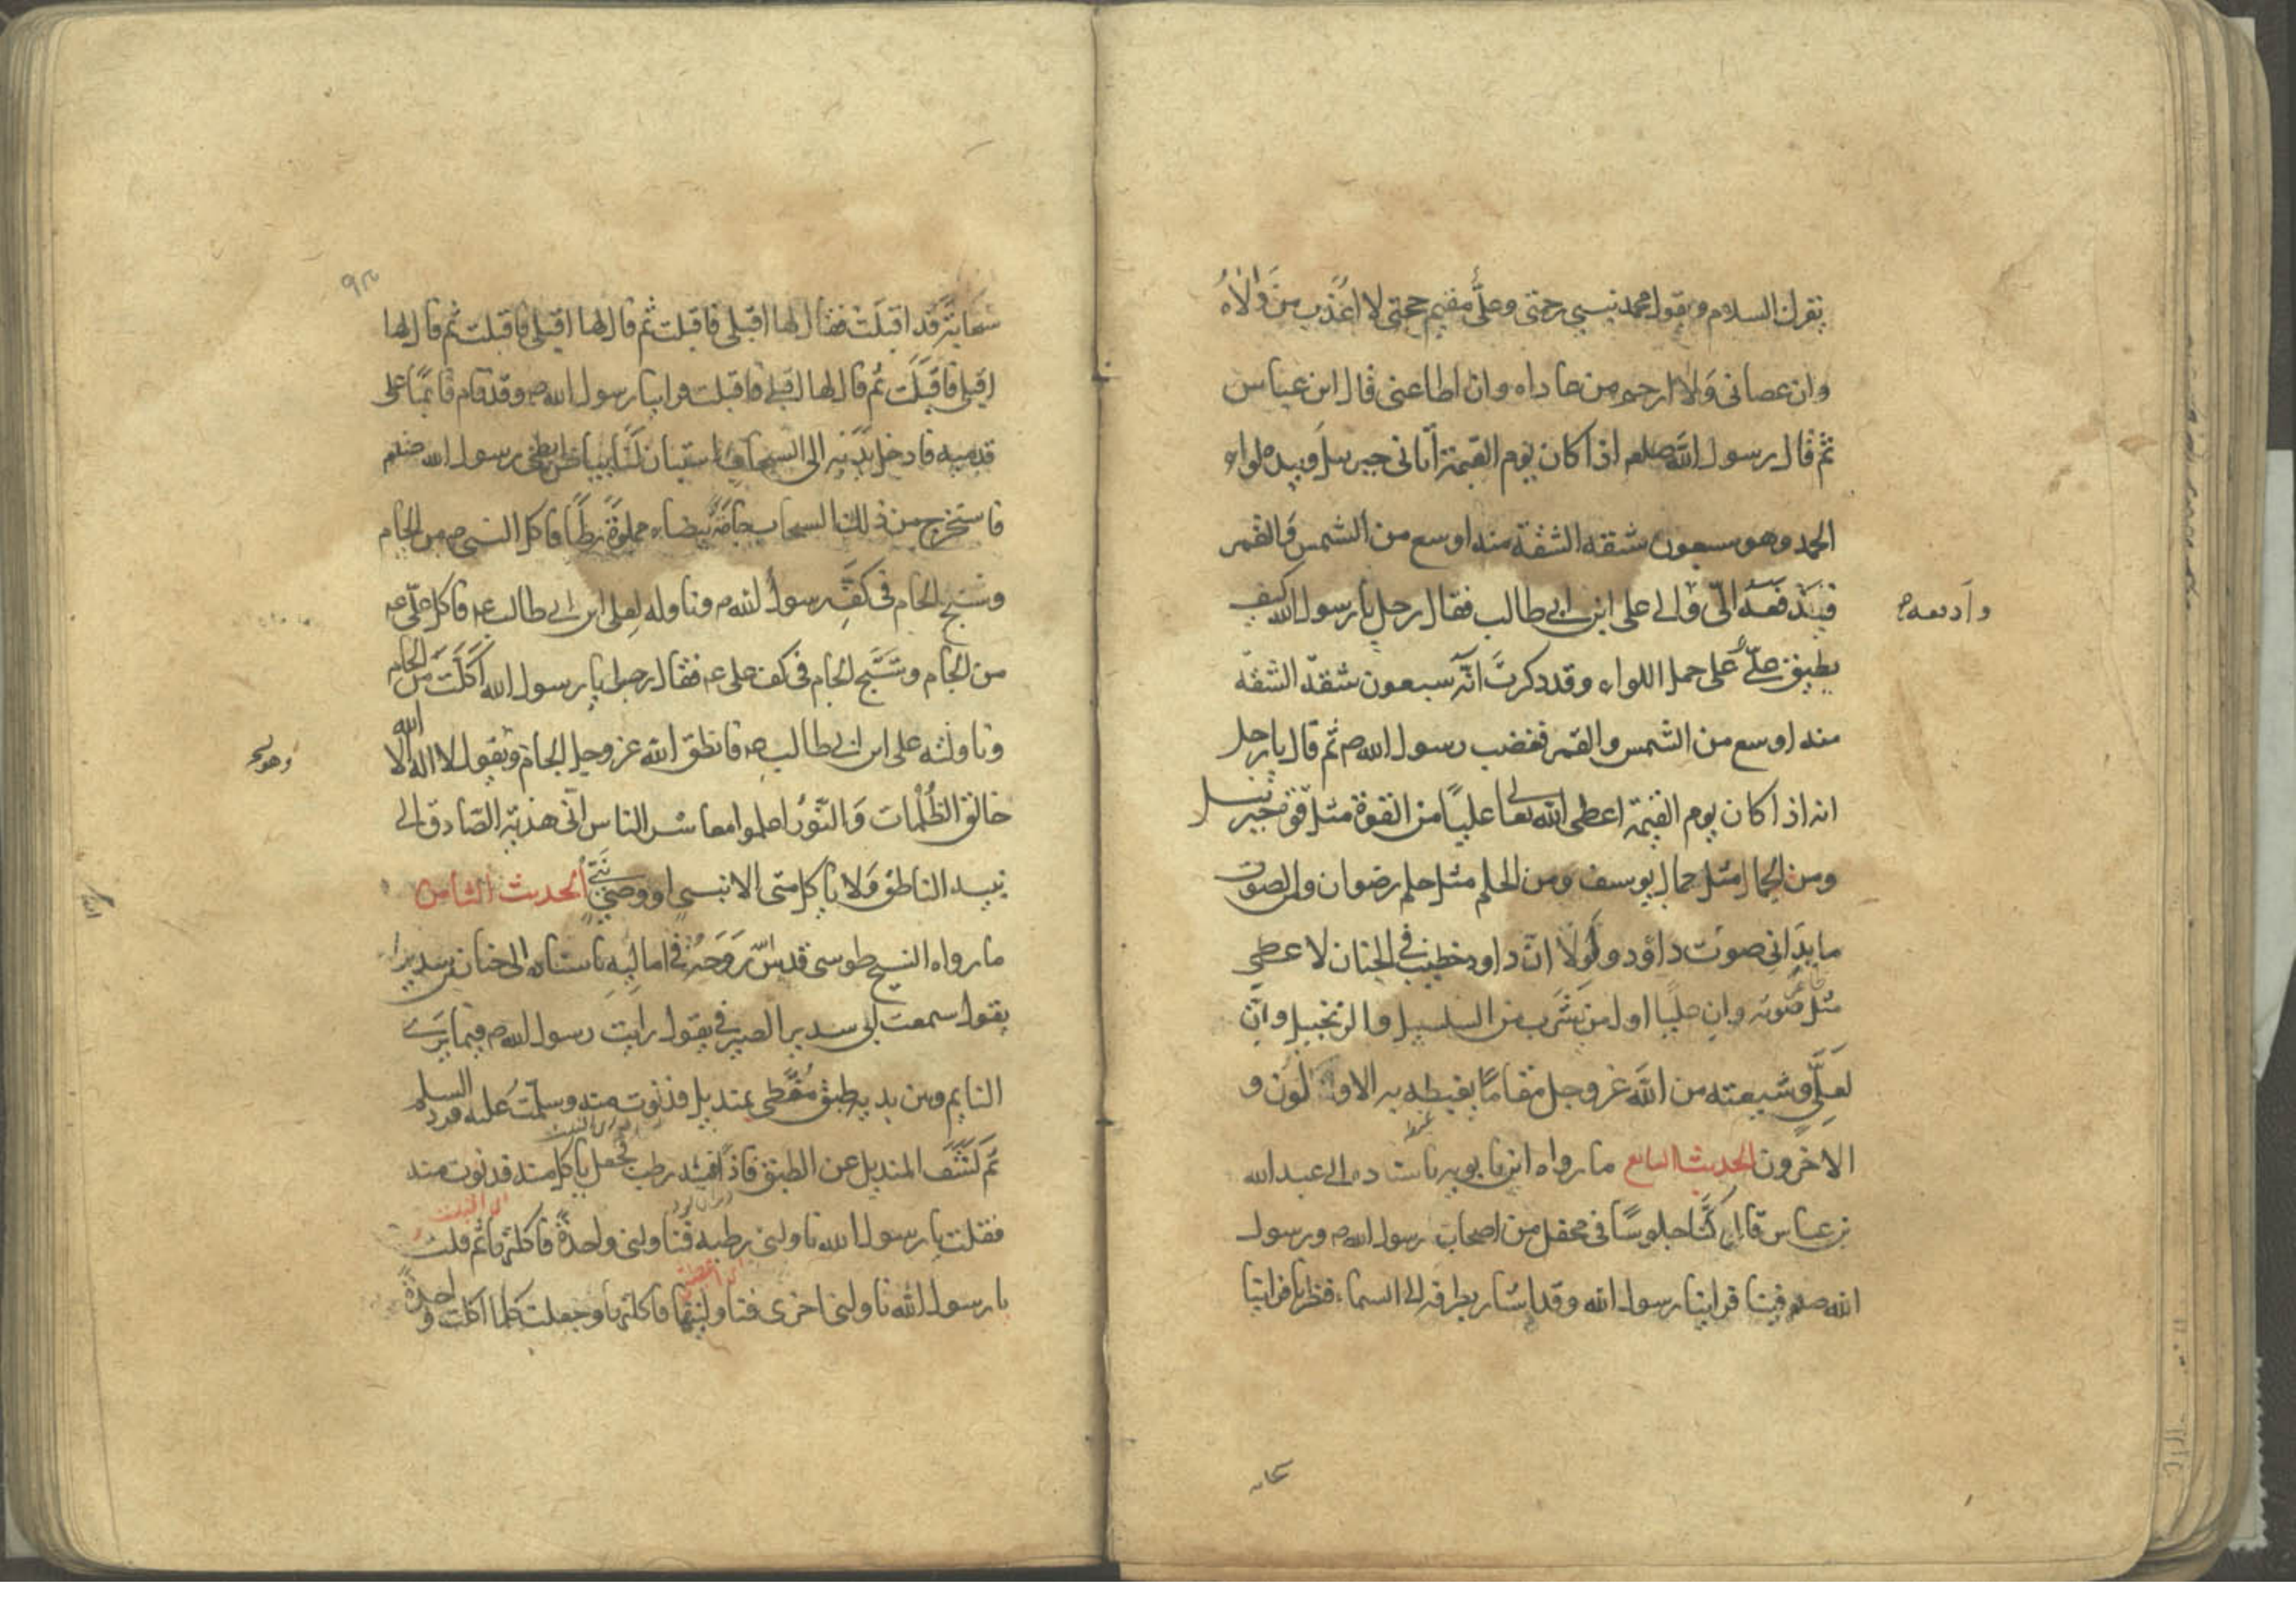 يقرئك السلام ويقول محمد نبيي رحمتي وعلي مقيم حجتي لا اعذب من والاه
وان عصاني ولا ارحم من عاداه وان اطاعني قال ابن عباس
ثم قال رسول الله صلعم اذا كان يوم القيمة اتاني جبرئيل وبيده لواء
الحمد وهو سبعون شقه الشقة منه اوسع من الشمس والقمر
فيدفعه الي والى على ابن ابي طالب فقال رجل يا رسول الله كيف
يطيق علي على حمل اللواء وقد ذكرت انه سبعون شقة الشقة
منه اوسع من الشمس والقمر فغضب رسول الله ص ثم قال يا رجل
انه اذا كان يوم القيمة اعطى الله تعالى عليا من القوة مثل قوة جبرئيل
ومن الجمال مثل جمال يوسف ومن الحلم مثل حلم رضوان ومن الصوت
ما يداني صوت داؤد ولولا ان داود خطيب في الجنان لاعطي
مثل صوته وان عليا اول من يشرب من السلسبيل والزنجبيل وان
لعلي وشيعته من الله عز وجل مقاما يغبطه به الاولون و
الاخرون الحديث السابع ما رواه ابن بابويه باسناده الى عبد الله
بن عباس قال كنا جلوسا في محفل من اصحاب رسول الله ص ورسول
الله صلعم فينا فراينا رسول الله وقد اشار بطرفه الى السماء فنظرنا فراينا
سحابة قد اقبلت فقال لها اقبلي فاقبلت ثم قال لها اقبلي فاقبلت ثم قال لها
اقبلي فاقبلت ثم قال لها اقبلي فاقبلت فراينا رسول الله ص وقد قام قائما على
قدميه فادخل يديه الى السحاب استبان لنا بياض ابطي رسول الله صلعم
فاستخرج من ذلك السحاب جامة بيضاء مملوة رطبا فاكل النبي ص من الجام
وسبح الجام في كف رسول الله ص وناوله لعلي ابن ابي طالب ع فاكل علي ع
من الجام وتسبح الجام في كف علي ع فقال رجل يا رسول الله اكلت من الجام
وناولته على ابن ابي طالب ع فانطق الله عز وجل الجام ويقول لا اله الا الله
خالق الظلمات والنور اعلموا معاشر الناس اني هدية الصادق الى
نبيه الناطق ولا ياكل مني الا نبي او وصي نبي الحديث الثامن
ما رواه الشيخ طوسي قدس روحه في اماليه باسناده الى حنان بن سدير
يقول سمعت ابي سدير الصيرفي يقول رايت رسول الله ص فيما يرى
النايم وبين يديه طبق مغطى بمنديل فدنوت منه وسلمت عليه فرد السلم
ثم كشف المنديل عن الطبق فاذا فيه رطب فجعل ياكل منه فدنوت منه
فقلت يا رسول الله ناولني رطبه فناولني واحدة فاكلتها ثم قلت
يا رسول الله ناولني اخرى فناولنيها فاكلتها وجعلت كلما اكلت واحدة